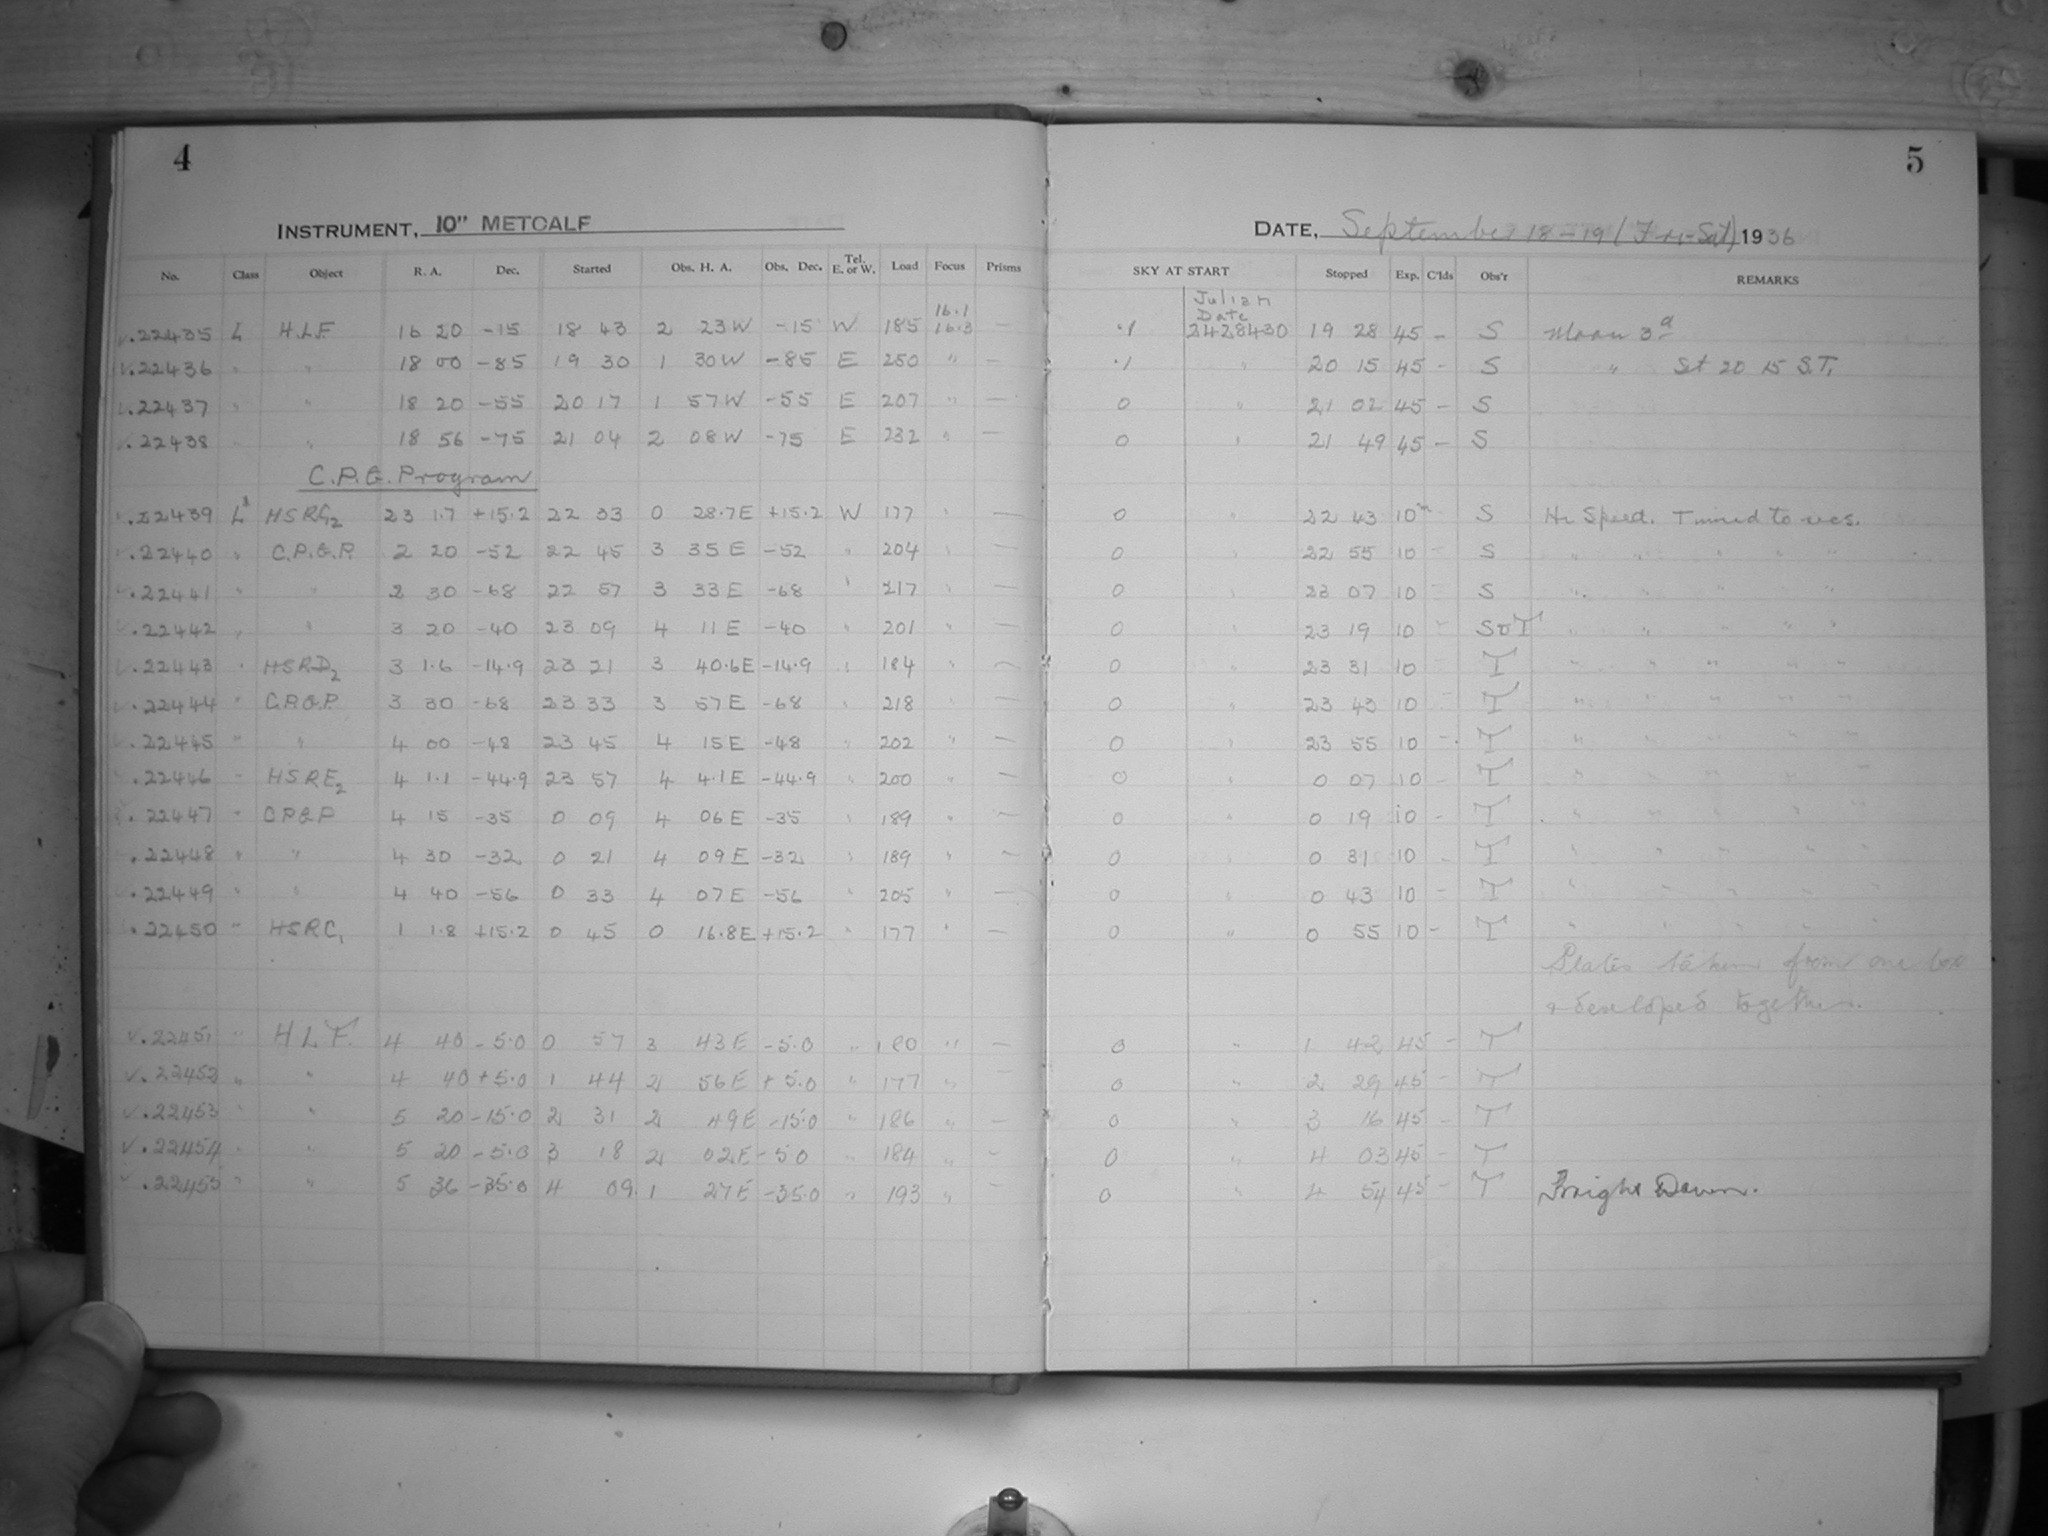 4
INSTRUMENT, 10" METCALF
No. Class Object R. A. Dec. Started Obs. H. A. Obs. Dec. Tel. E. or W. Load Focus Prisms
22435 L H.L.F. 16 20 -15 18 43 2 23 W -15 W 185 16.1 16.3 —
22436 " " 18 00 -85 19 30 1 30 W -85 E 250 " —
22437 " " 18 20 -55 20 17 1 57 W -55 E 207 " —
22438 " 18 56 -75 21 04 2 08 W -75 E 232 " —
C.P.G. Program
22439 L HSRG2 23 1.7 +15.2 22 33 0 28.7E +15.2 W 177 " —
22440 " C.P.G.P. 2 20 -52 22 45 3 35 E -52 " 204 " —
22441 " " 2 30 -68 22 57 3 33 E -68 " 217 " —
22442 " " 3 20 -40 23 09 4 11 E -40 " 201 " —
22443 " HSRD2 3 1.6 -14.9 23 21 3 40.6E -14.9 " 184 " —
22444 " C.P.G.P. 3 30 -68 23 33 3 57 E -68 " 218 " —
22445 " " 4 00 -48 23 45 4 15 E -48 " 202 " —
22446 " HSRE2 4 1.1 -44.9 23 57 4 4.1E -44.9 " 200 " —
22447 " CPGP 4 15 -35 0 09 4 06 E -35 " 189 " —
22448 " " 4 30 -32 0 21 4 09 E -32 " 189 " —
22449 " " 4 40 -56 0 33 4 07 E -56 " 205 " —
22450 " HSRC1 1 1.8 +15.2 0 45 0 16.8E +15.2 " 177 " —
22451 " H L F. 4 40 -5.0 0 57 3 43 E -5.0 " 180 " —
22452 " " 4 40 +5.0 1 44 2 56 E +5.0 " 177 " —
22453 " " 5 20 -15.0 2 31 2 49 E -15.0 " 186 " —
22454 " " 5 20 -5.0 3 18 2 02 E -5.0 " 184 " —
22455 " " 5 36 -35.0 4 09 1 27 E -35.0 " 193 " —
5
DATE, September 18-19 (Fri-Sat) 1936
SKY AT START Stopped Exp. C'lds Obs'r REMARKS
Julian Date
.1 2428430 19 28 45 — S Moon 3d
.1 " 20 15 45 — S " Set 20 15 S.T.
0 " 21 02 45 — S
0 " 21 49 45 — S
0 " 22 43 10m S Hr Speed. Timed to secs.
0 " 22 55 10 — S " " " " "
0 " 23 07 10 — S " " " "
0 " 23 19 10 — S&T " " " " "
0 " 23 31 10 — T " " " " "
0 " 23 43 10 — T " " " " "
0 " 23 55 10 — T " " " " "
0 " 0 07 10 — T " " " " "
0 " 0 19 10 — T " " " " "
0 " 0 31 10 — T " " " " "
0 " 0 43 10 — T " " " " "
0 " 0 55 10 — T " " " " "
Plates taken from one box
& developed together.
0 " 1 42 45 — T
0 " 2 29 45 — T
0 " 3 16 45 — T
0 " 4 03 45 — T
0 " 4 54 45 — T Bright Dawn.